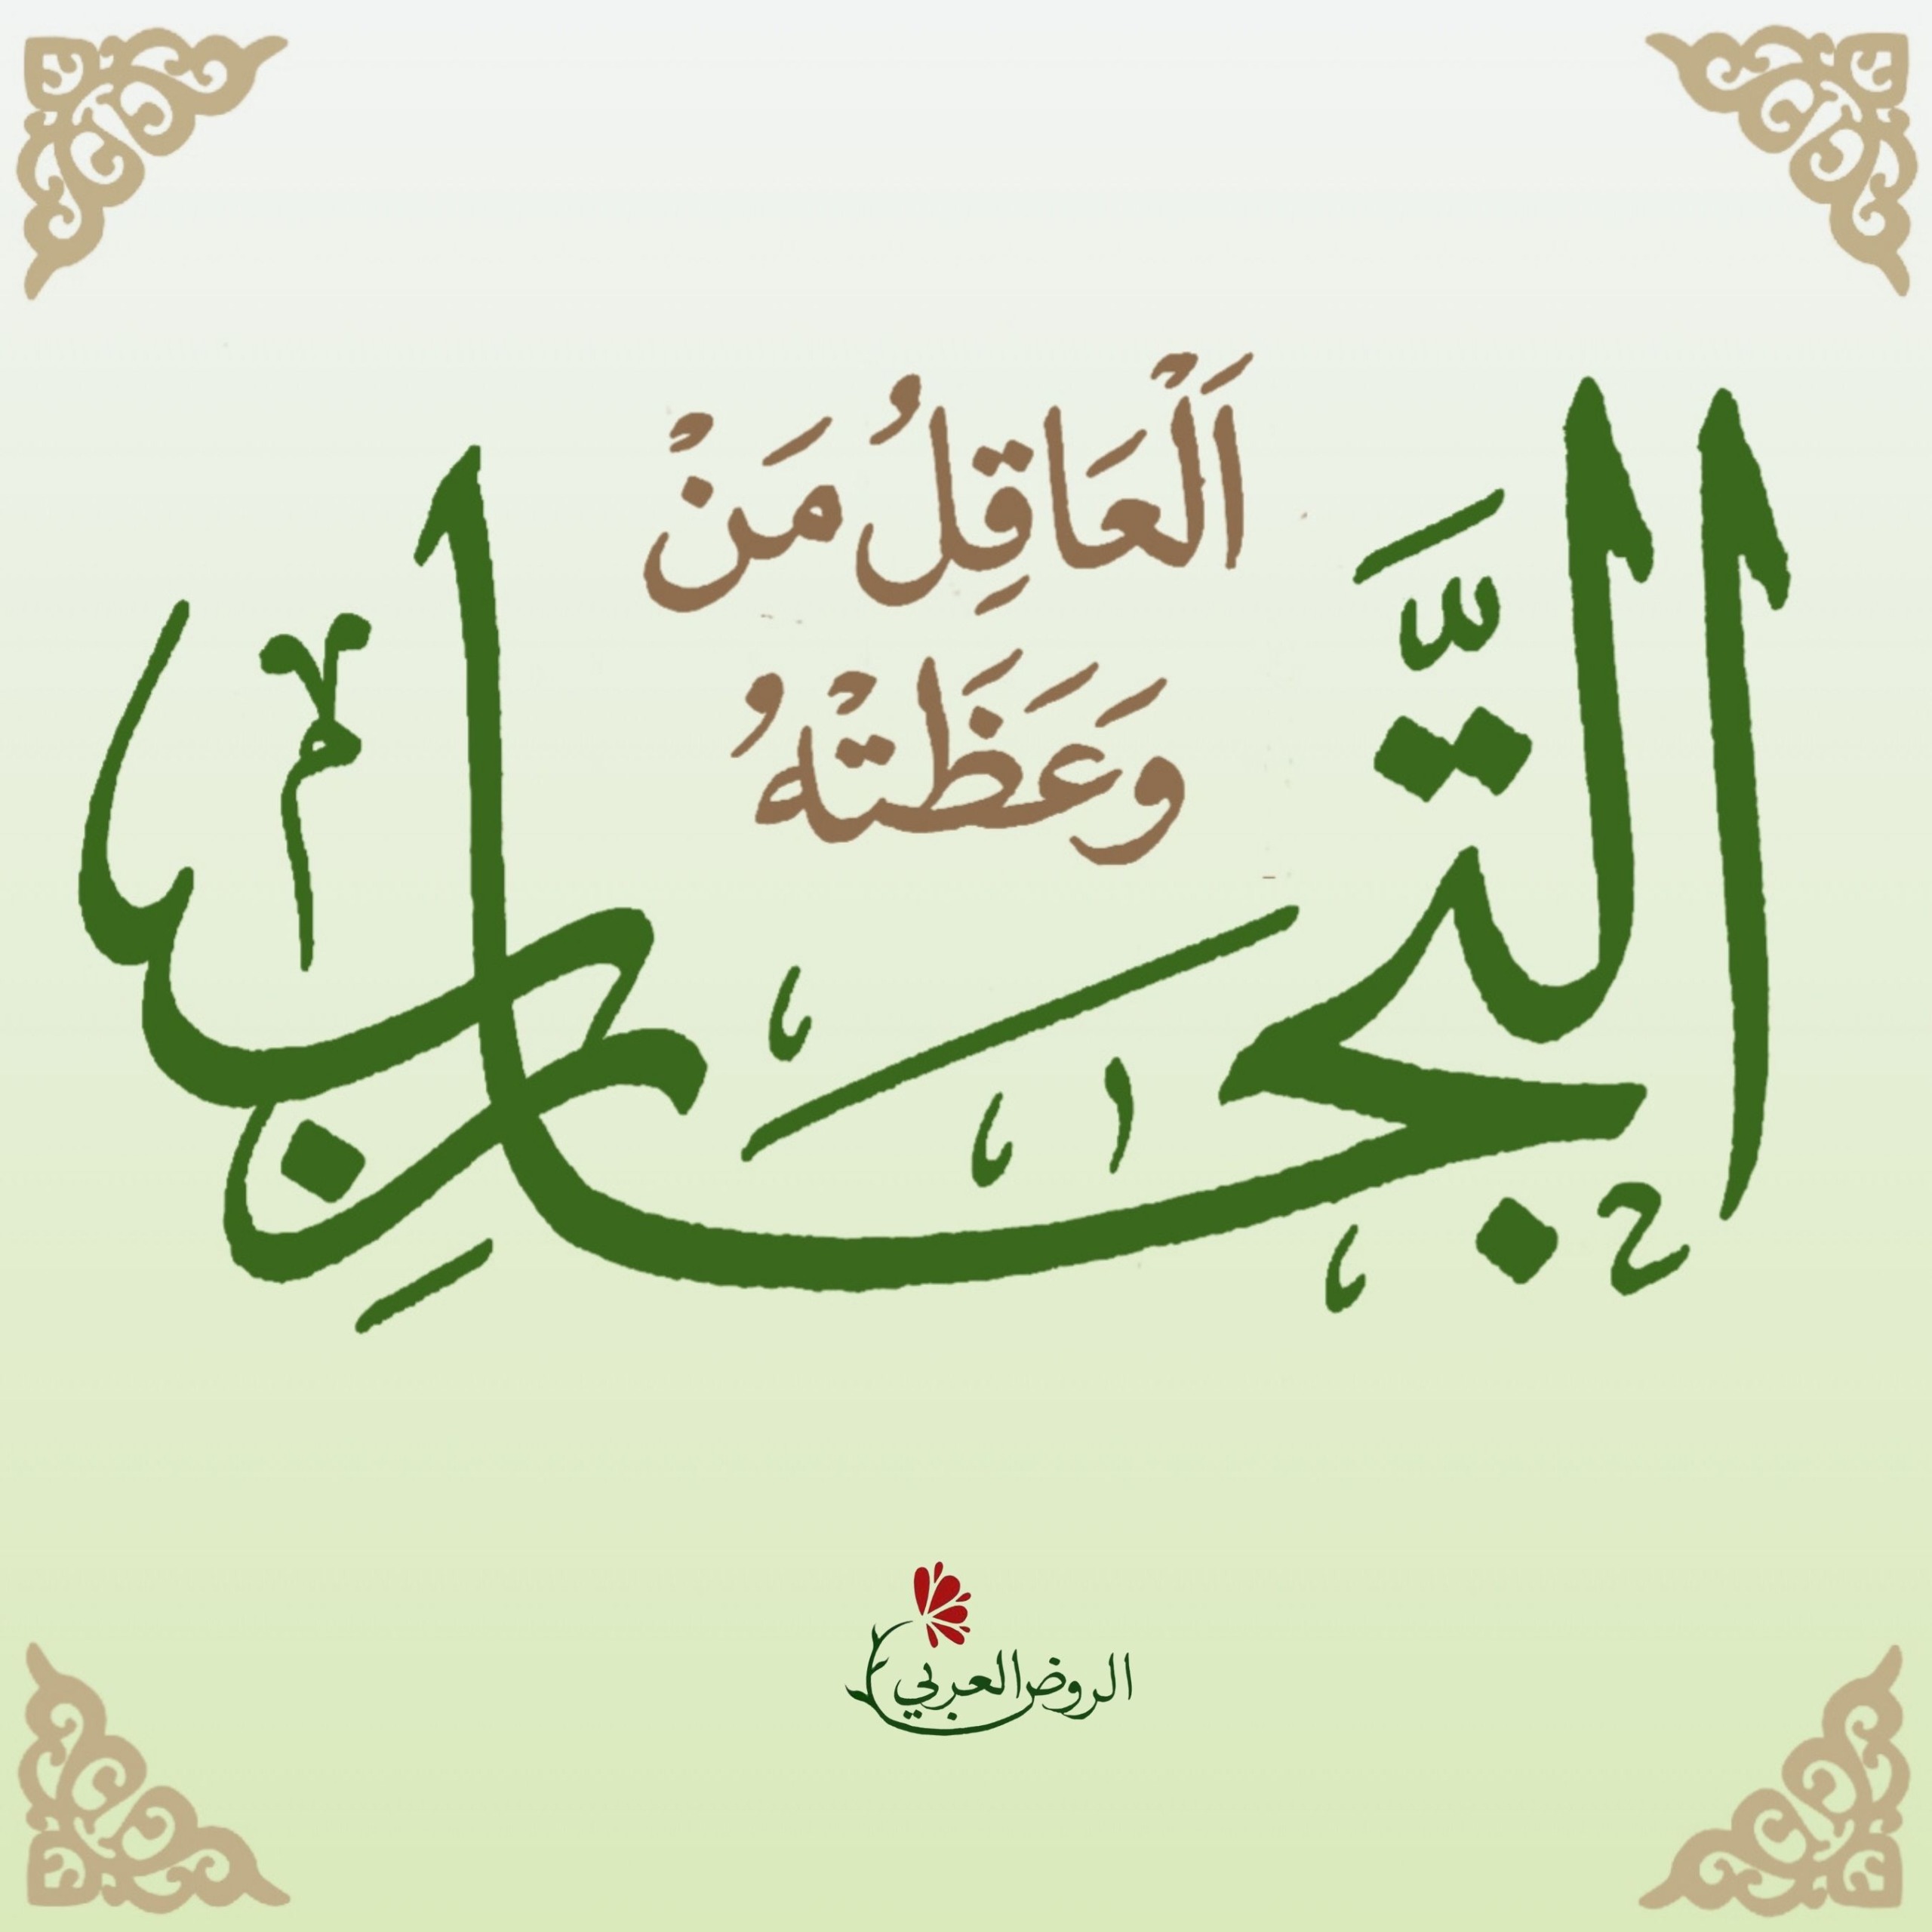 اَلْعَاقِلُ مَنْ
وَعَظَتْهُ
التَّجَارِب
الروض العربي